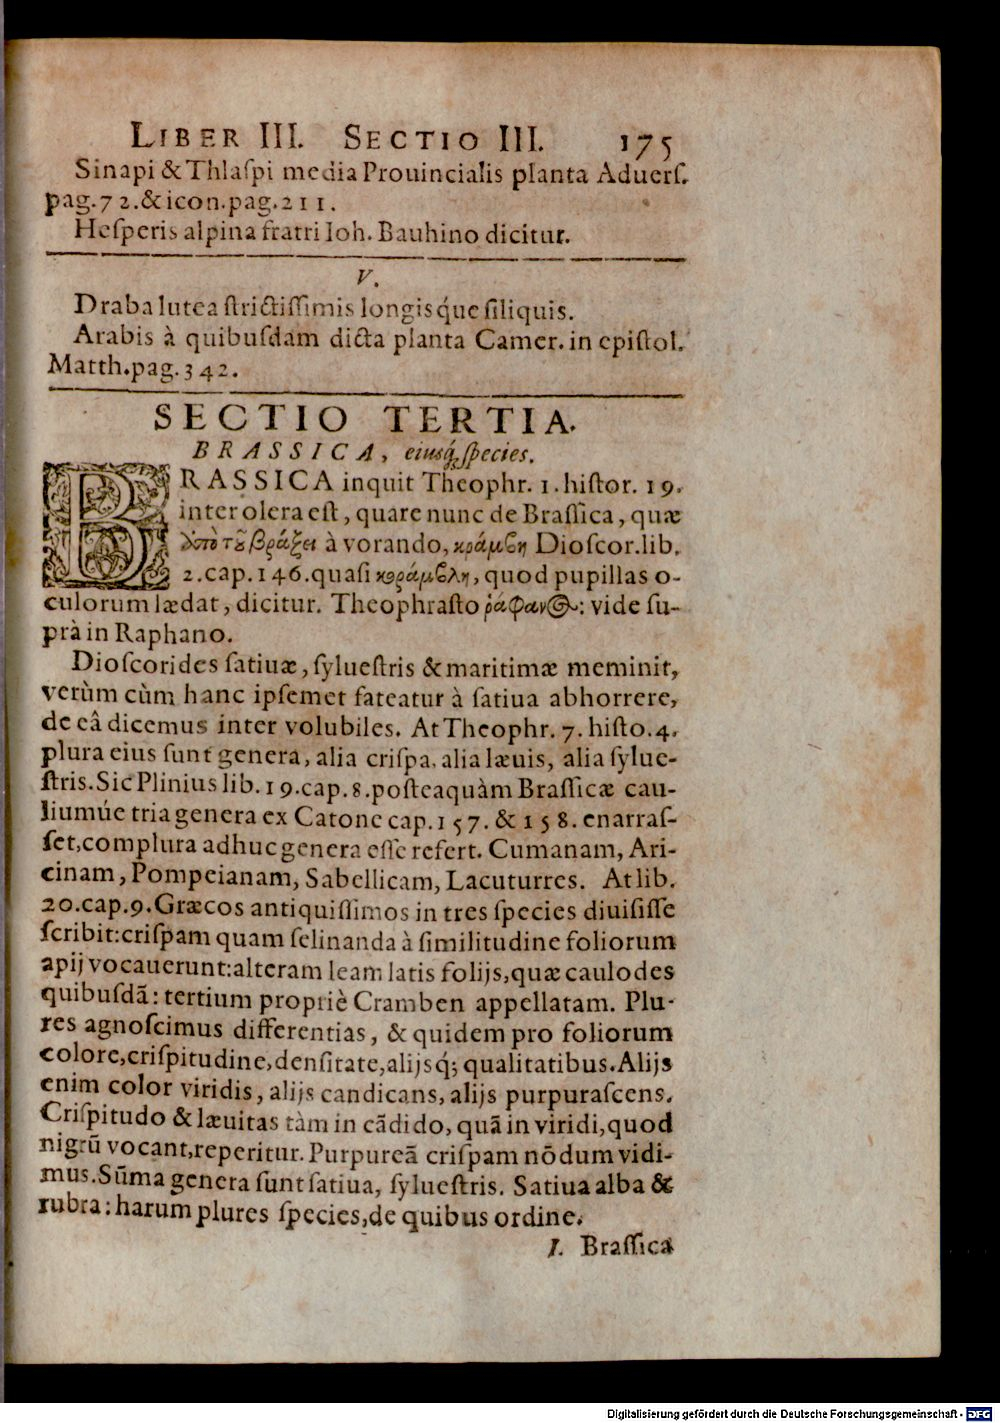 LIBER III. SECTIO III. 175
Sinapi & Thlaſpi media Prouincialis planta Aduerſ.
pag.72.& icon.pag.211.
Heſperis alpina fratri Ioh. Bauhino dicitur.
V.
Draba lutea ſtrictiſſimis longisq́ue ſiliquis.
Arabis à quibuſdam dicta planta Camer. in epiſtol.
Matth.pag.342.
SECTIO TERTIA.
BRASSICA, eiusq́; ſpecies.
BRASSICA inquit Theophr. 1. hiſtor. 19.
inter olera eſt, quare nunc de Braſſica, quæ
ὑπὸ τοῦ βράξει à vorando, κράμβη Dioſcor.lib.
2.cap.146.quaſi κοράμβλη, quod pupillas o-
culorum lædat, dicitur. Theophraſto ῥάφανος: vide ſu-
prà in Raphano.
Dioſcorides ſatiuæ, ſylueſtris & maritimæ meminit,
verùm cùm hanc ipſemet fateatur à ſatiua abhorrere,
de eâ dicemus inter volubiles. At Theophr. 7. hiſto.4.
plura eius ſunt genera, alia criſpa, alia læuis, alia ſylue-
ſtris. Sic Plinius lib.19.cap.8.poſteaquàm Braſſicæ cau-
liumúe tria genera ex Catone cap.157. & 158. enarraſ-
ſet,complura adhuc genera eſſe refert. Cumanam, Ari-
cinam, Pompeianam, Sabellicam, Lacuturres. At lib.
20.cap.9.Græcos antiquiſſimos in tres ſpecies diuiſiſſe
ſcribit:criſpam quam ſelinanda à ſimilitudine foliorum
apij vocauerunt:alteram leam latis folijs,quæ caulodes
quibuſdã: tertium propriè Cramben appellatam. Plu-
res agnoſcimus differentias, & quidem pro foliorum
colore,criſpitudine,denſitate,alijsq́; qualitatibus. Alijs
enim color viridis, alijs candicans, alijs purpuraſcens.
Criſpitudo & læuitas tàm in cãdido, quã in viridi,quod
nigrũ vocant,reperitur. Purpureã criſpam nõdum vidi-
mus. Sũma genera ſunt ſatiua, ſylueſtris. Satiua alba &
rubra: harum plures ſpecies,de quibus ordine.
I. Braſſica
Digitalisierung gefördert durch die Deutsche Forschungsgemeinschaft - DFG